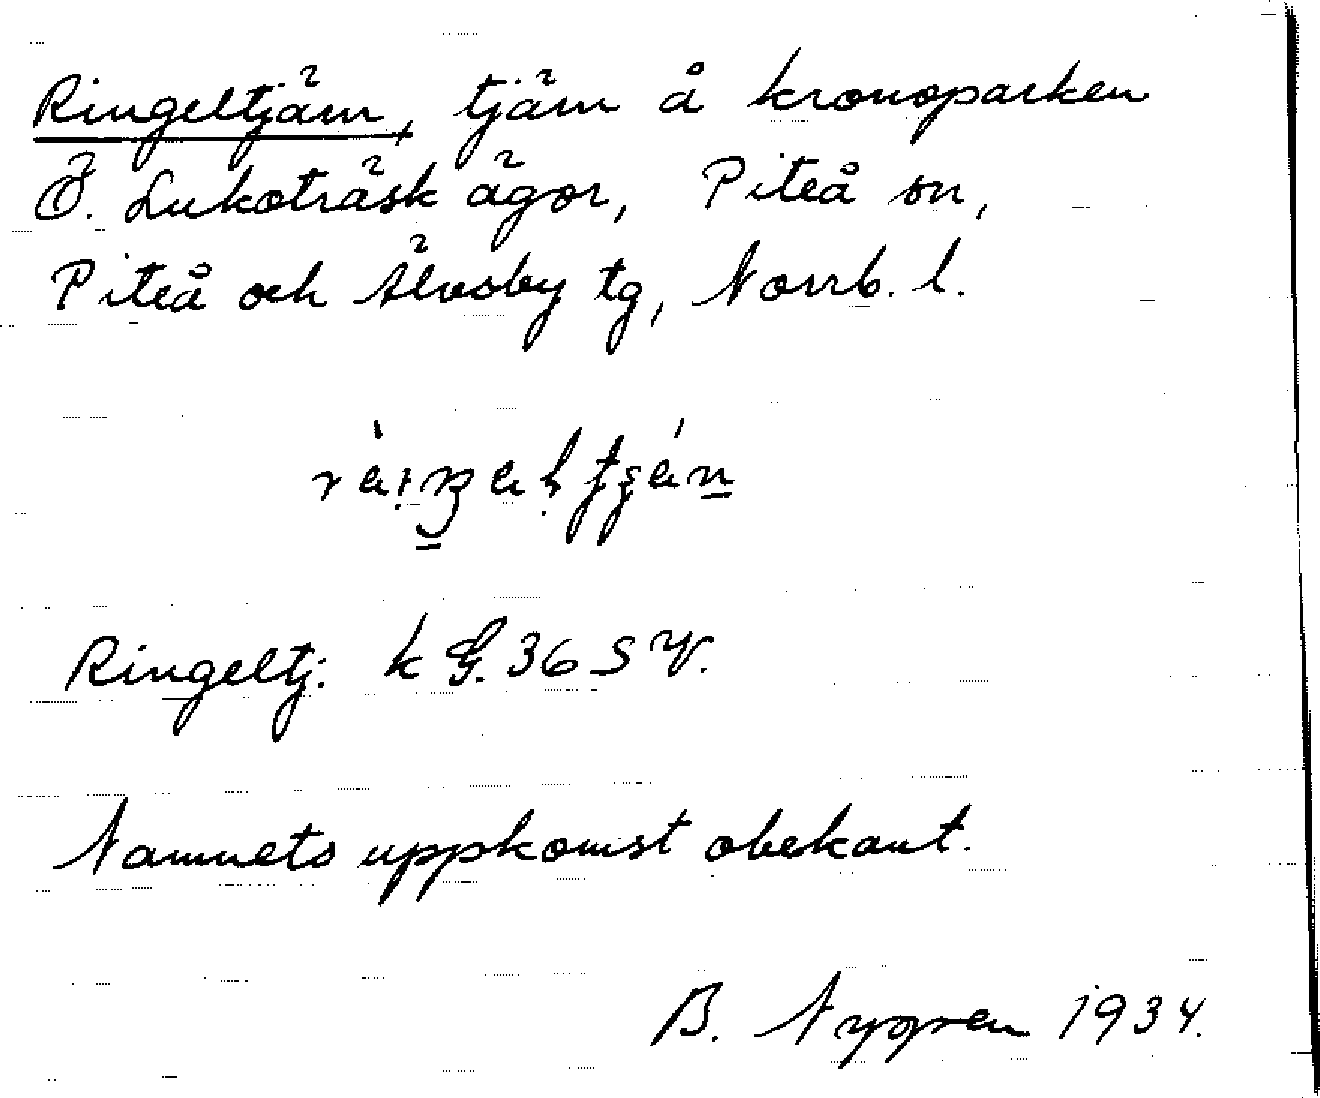 Ringeltjärn, tjärn å kronoparken
Ö. Lukoträsk ägor, Piteå sn,
Piteå och Älvsby tg, Norrb. l.
Ringeltj: k G. 36 SV.
Namnets uppkomst obekant.
B. Nygren 1934.